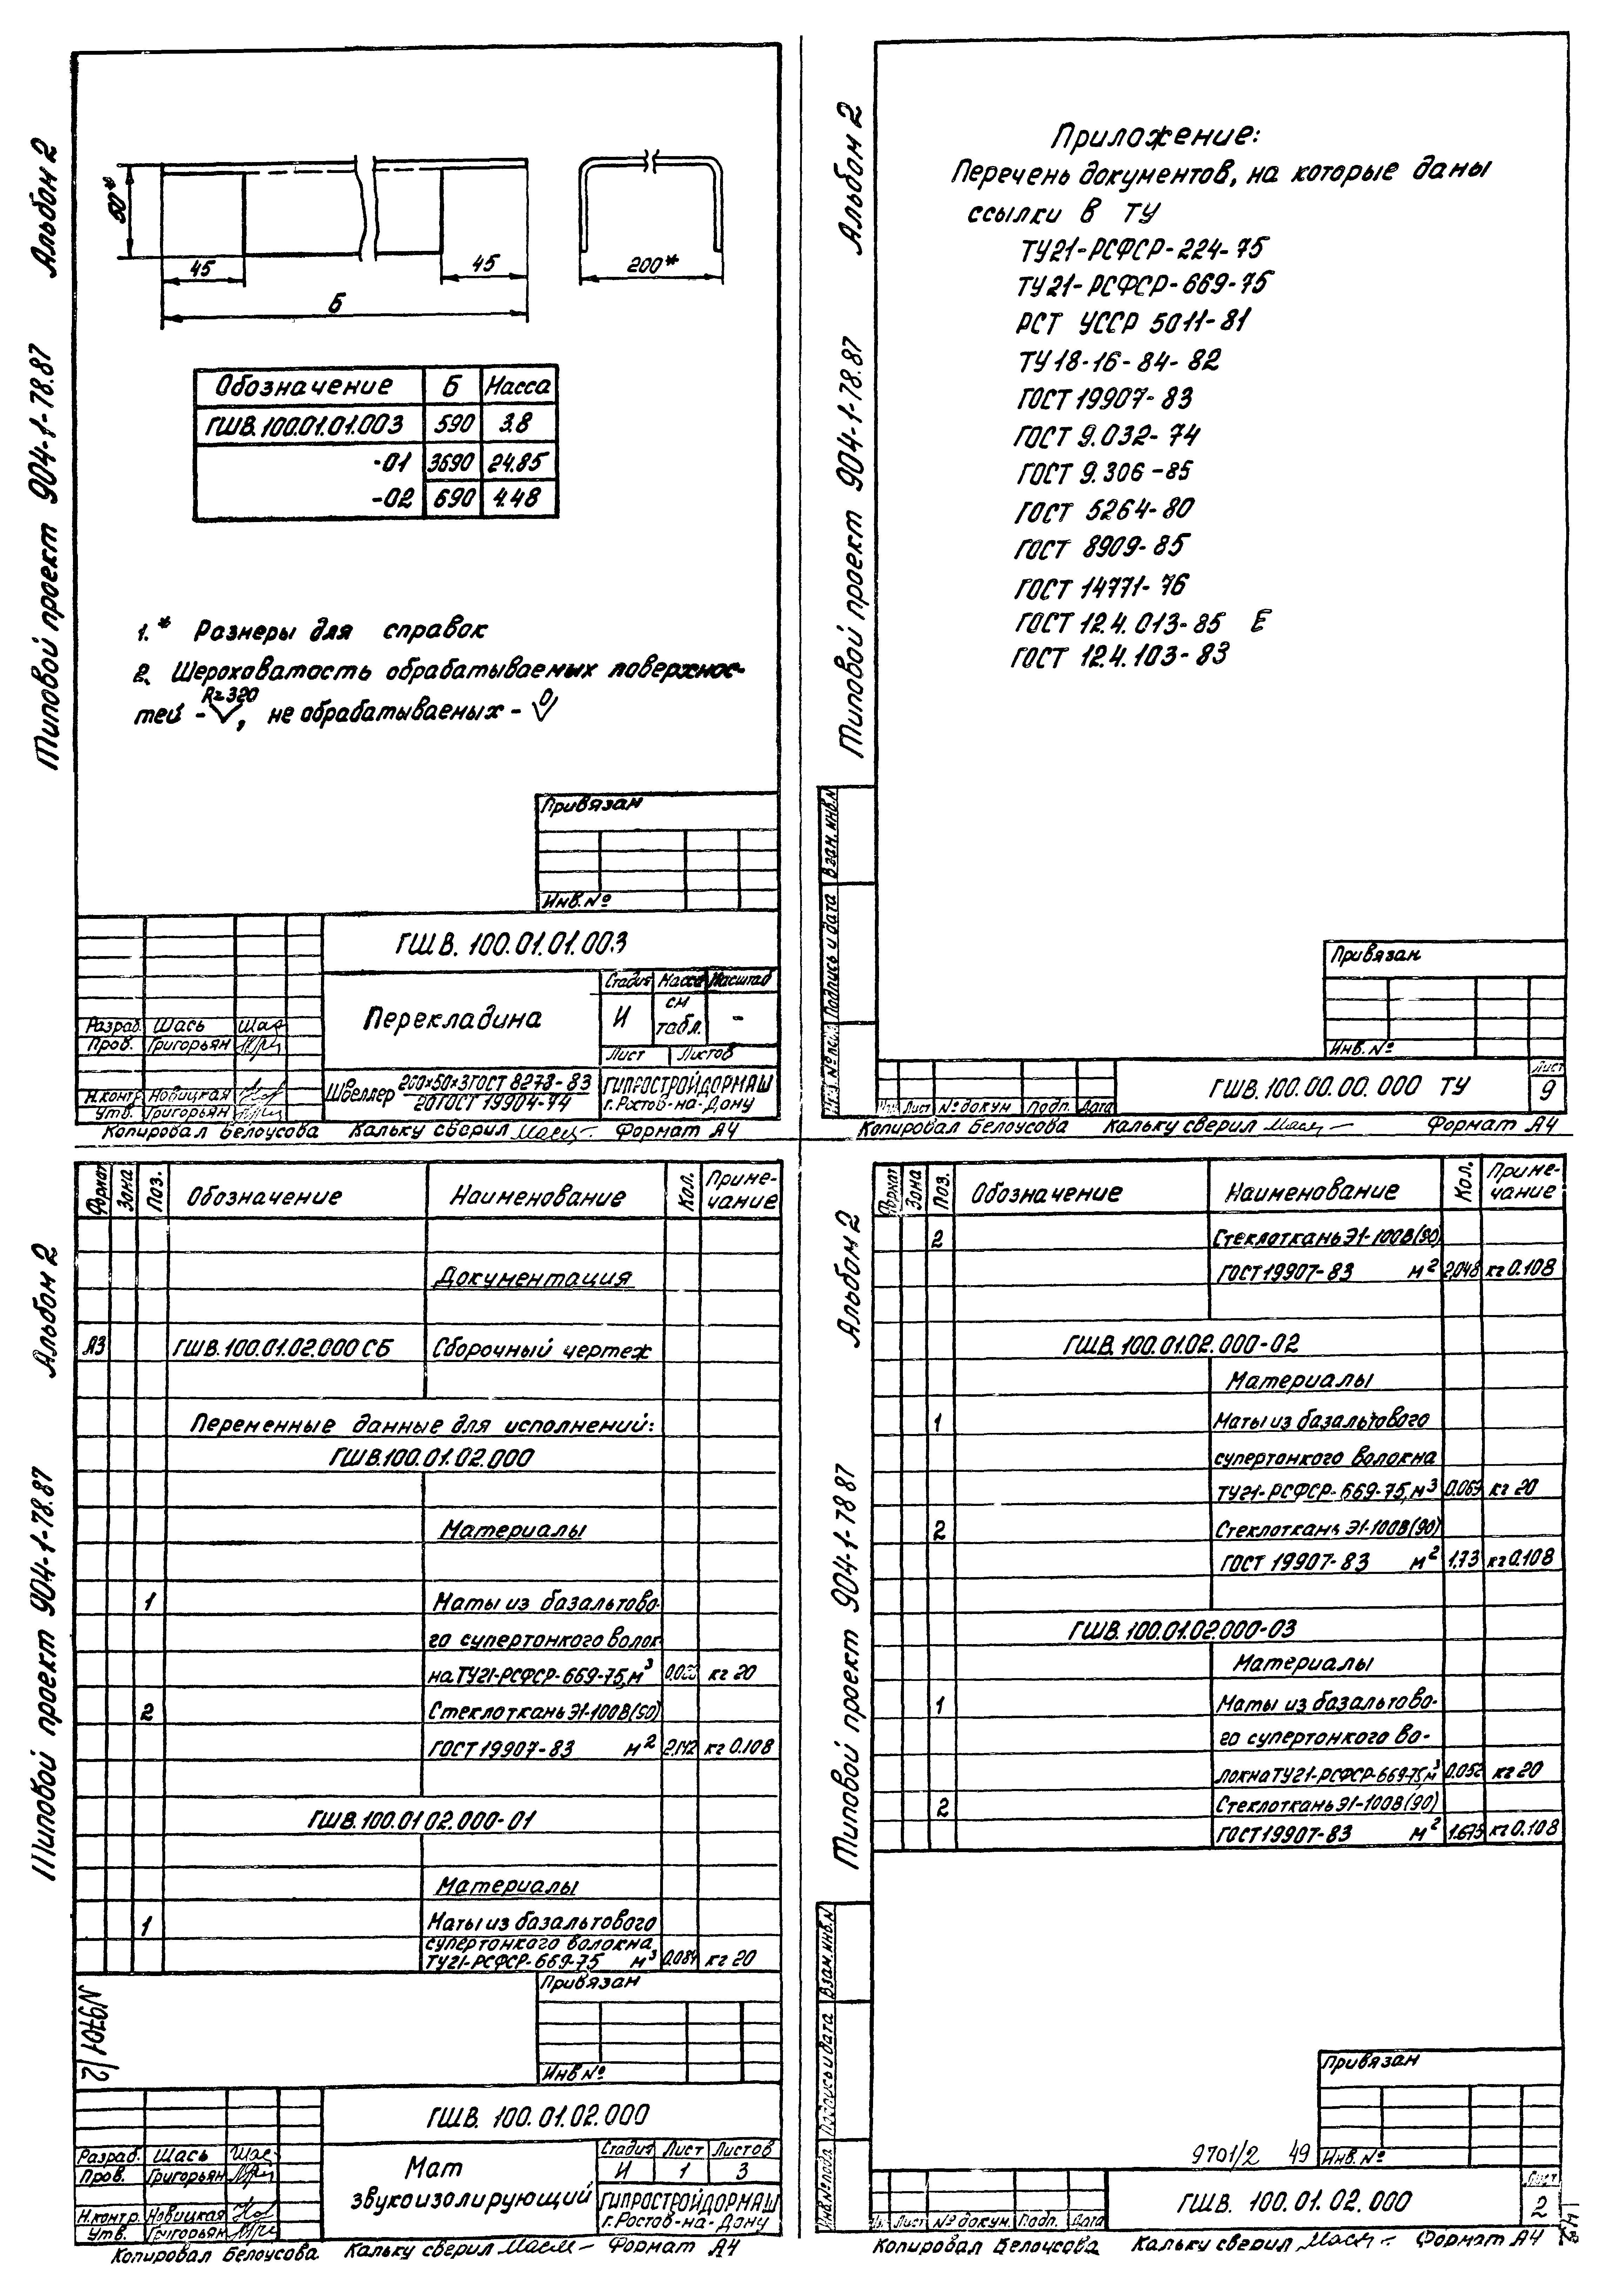 Альбом 2
Типовой проект 904-1-78.87
50*
45
45
Б
200*
Обозначение Б Масса
ГШВ.100.01.01.003 590 3.8
-01 3690 24.85
-02 690 4.48
1.* Размеры для справок
2. Шероховатость обрабатываемых поверхнос-
Rz320
тей - , не обрабатываемых -
Привязан
Инв.№
ГШВ. 100.01.01.003
Перекладина
Стадия Масса Масштаб
И см табл. -
Лист Листов
Разраб. Шась
Пров. Григорьян
Н.контр Новицкая
Утв. Григорьян
Швеллер 200×50×3 ГОСТ 8278-83
20 ГОСТ 19904-74
ГИПРОСТРОЙДОРМАШ
г.Ростов-на-Дону
Копировал Белоусова Кальку сверил Формат А4
Альбом 2
Типовой проект 904-1-78.87
Приложение:
Перечень документов, на которые даны
ссылки в ТУ
ТУ21-РСФСР-224-75
ТУ21-РСФСР-669-75
РСТ УССР 5011-81
ТУ18-16-84-82
ГОСТ 19907-83
ГОСТ 9.032-74
ГОСТ 9.306-85
ГОСТ 5264-80
ГОСТ 8909-85
ГОСТ 14771-76
ГОСТ 12.4.013-85 Е
ГОСТ 12.4.103-83
Взам.инв.№
Подпись и дата
Привязан
Инв.№
Лист № докум Подп. Дата
ГШВ.100.00.00.000 ТУ
Лист
9
Копировал Белоусова Кальку сверил Формат А4
Альбом 2
Типовой проект 904-1-78.87
Формат Зона Поз. Обозначение Наименование Кол. Приме-
чание
Документация
А3 ГШВ.100.01.02.000 СБ Сборочный чертеж
Переменные данные для исполнений:
ГШВ.100.01.02.000
Материалы
1 Маты из базальтово-
го супертонкого волок
на ТУ21-РСФСР-669-75, м³ кг 20
2 Стеклоткань Э1-100В(90)
ГОСТ 19907-83 м² 2.142 кг 0.108
ГШВ.100.01 02.000-01
Материалы
1 Маты из базальтового
супертонкого волокна
ТУ21-РСФСР-669-75 м³ 0.084 кг 20
Привязан
Инв №
№9701/2
ГШВ. 100.01.02.000
Разраб. Шась
Пров. Григорьян
Н.контр. Новицкая
Утв. Григорьян
Мат
звукоизолирующий
Стадия Лист Листов
И 1 3
ГИПРОСТРОЙДОРМАШ
г.Ростов-на-Дону
Копировал Белоусова Кальку сверил Формат А4
Альбом 2
Типовой проект 904-1-78 87
Формат Зона Поз. Обозначение Наименование Кол. Приме-
чание
2 Стеклоткань Э1-100В(90)
ГОСТ 19907-83 м² 2,048 кг 0.108
ГШВ.100.01.02.000-02
Материалы
1 Маты из базальтового
супертонкого волокна
ТУ21-РСФСР-669-75, м³ 0.069 кг 20
2 Стеклоткань Э1-100В(90)
ГОСТ 19907-83 м² 1.73 кг 0.108
ГШВ.100.01.02.000-03
Материалы
1 Маты из базальтово-
го супертонкого во-
локна ТУ21-РСФСР-669-75, м³ 0.052 кг 20
2 Стеклоткань Э1-100В(90)
ГОСТ 19907-83 м² 1.673 кг 0.108
Взам.инв.№
Подпись и дата
Инв.№ подл
Привязан
9701/2 49 Инв.№
Лист № докум. Подп. Дата
ГШВ. 100.01.02.000
Лист
2
Копировал Белоусова Кальку сверил Формат А4